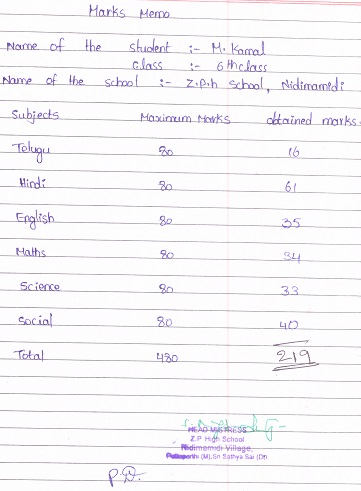 Marks Memo
Name of the student :- M. Kamal
class :- 6th class
Name of the school :- Z.p.h School, Nidimamidi
Subjects Maximum Marks obtained marks.
Telugu 80 16
Hindi 80 61
English 80 35
Maths 80 34
Science 80 33
Social 80 40
Total 480 219
HEAD MISTRESS
Z.P High School
Nidimamidi Village,
(M).Sri Sathya Sai (Dt)